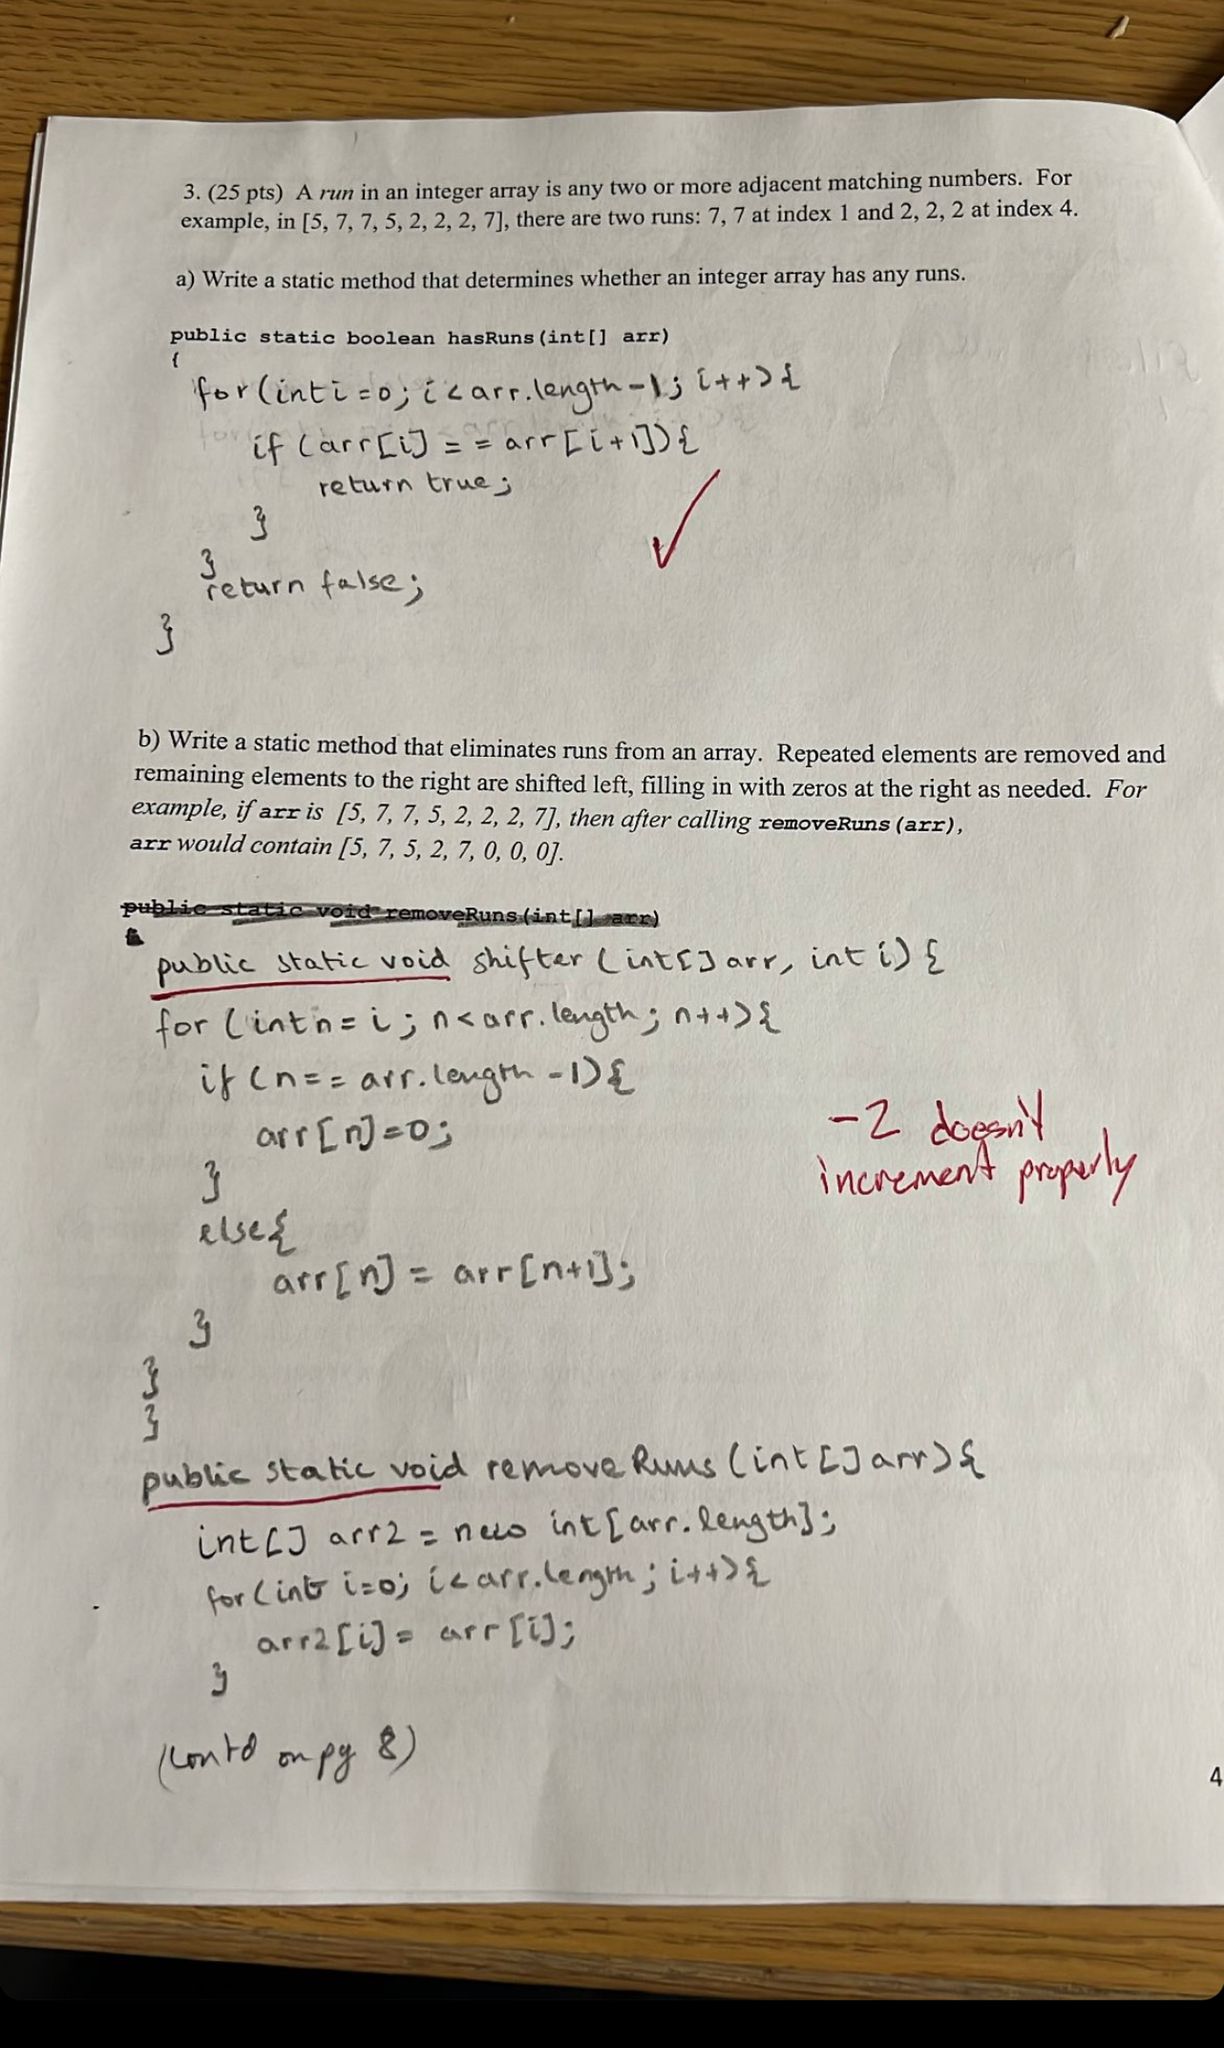 3. (25 pts) A run in an integer array is any two or more adjacent matching numbers. For
example, in [5, 7, 7, 5, 2, 2, 2, 7], there are two runs: 7, 7 at index 1 and 2, 2, 2 at index 4.
a) Write a static method that determines whether an integer array has any runs.
public static boolean hasRuns(int[] arr)
{
for(int i=0; i<arr.length-1; i++){
if (arr[i] == arr[i+1]){
return true;
}
}
return false;
}
b) Write a static method that eliminates runs from an array. Repeated elements are removed and
remaining elements to the right are shifted left, filling in with zeros at the right as needed. For
example, if arr is [5, 7, 7, 5, 2, 2, 2, 7], then after calling removeRuns(arr),
arr would contain [5, 7, 5, 2, 7, 0, 0, 0].
public static void removeRuns(int[] arr)
public static void shifter (int[] arr, int i) {
for (int n = i; n<arr.length; n++){
if (n == arr.length -1){
arr[n]=0;
-2 doesn't
increment properly
}
else{
arr[n] = arr[n+1];
}
}
}
public static void removeRuns (int[] arr){
int[] arr2 = new int[arr.length];
for(int i=0; i<arr.length; i++){
arr2[i]= arr[i];
}
(contd on pg 8)
4